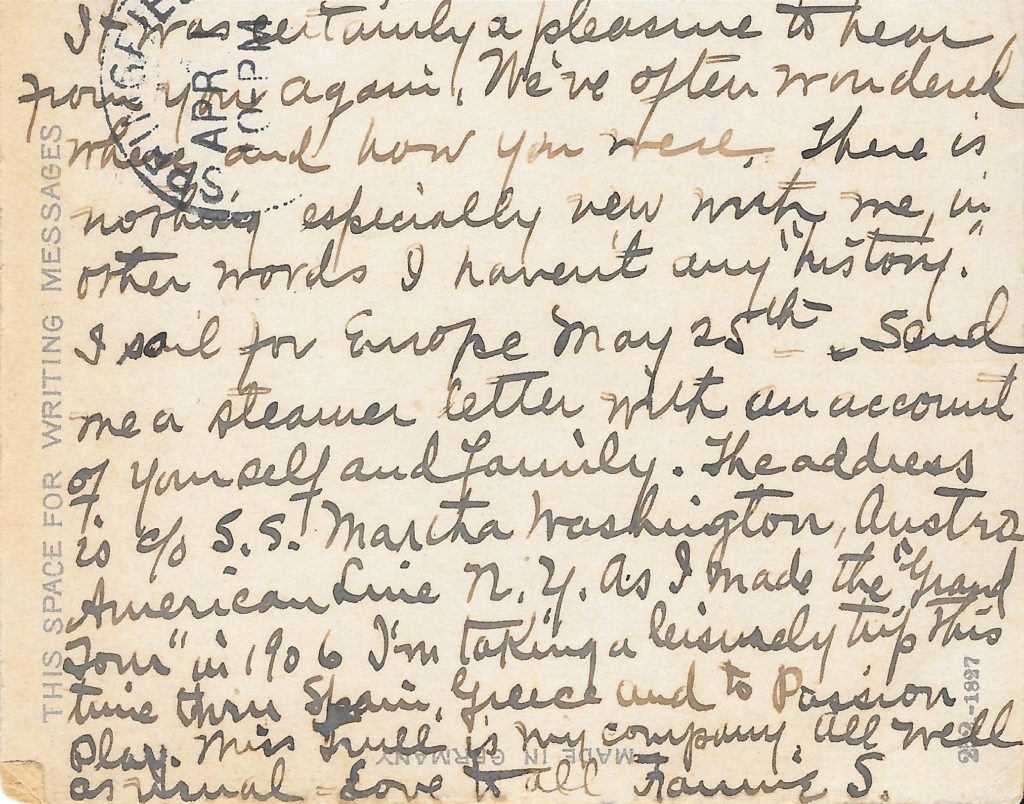 It was certainly a pleasure to hear
from you again. We've often wondered
where and how you were. There is
nothing especially new with me, in
other words I haven't any "history."
I sail for Europe May 25th. Send
me a steamer letter with an account
of yourself and family. The address
is c/o S.S. Martha Washington, Austro
American Line N.Y. As I made the "Grand
Tour" in 1906 I'm taking a leisurely trip this
time thru Spain, Greece and to Passion
Play. Miss Trull is my company. All well
as usual - Love to all Fannie S.
THIS SPACE FOR WRITING MESSAGES
SPRINGFIE
APR 1
10 PM
MADE IN GERMANY
-1827